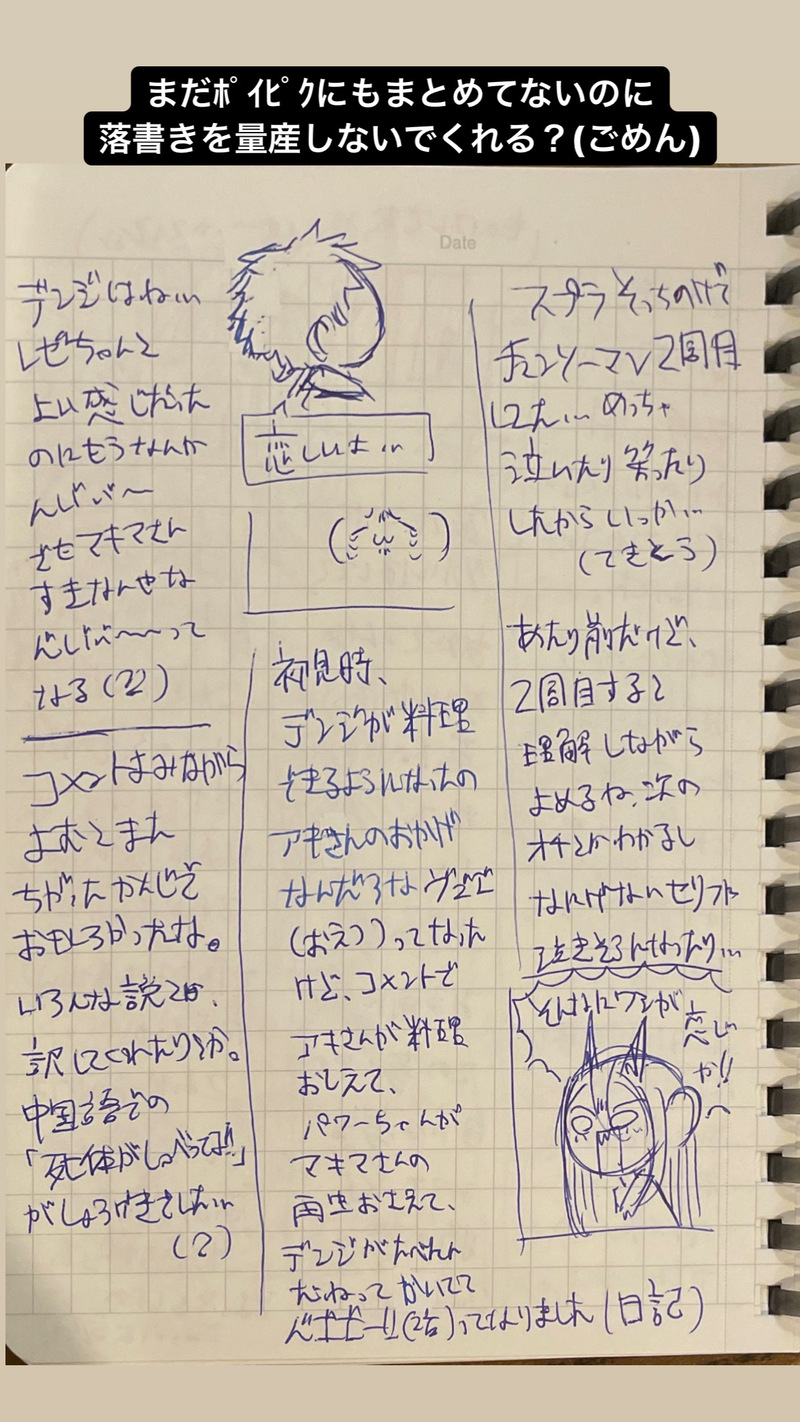 まだﾎﾟｲﾋﾟｸにもまとめてないのに
落書きを量産しないでくれる？(ごめん)
Date
デンジはね…
レゼちゃんと
よい感じだった
のにもうなんか
んじバ〜
でもマキマさん
すきなんやな
んじバ〜〜〜って
なる(泣)
コメントよみながら
よむとまた
ちがったかんじで
おもしろかったな。
いろんな説とか、
訳してくれたりとか。
中国語での
「死体がしゃべってる!!」
がしょうげきでした…
(?)
恋しいよ…
初見時、
デンジが料理
できるようになったの
アキさんのおかげ
なんだろうな ヴェェ
(おえつ)ってなった
けど、コメントで
アキさんが料理
おしえて、
パワーちゃんが
マキマさんの
再生おさえて、
デンジがたべたん
だねって かいてて
(泣)ってなりました(日記)
スプラそっちのけで
チェンソーマン2周目
してた… めっちゃ
泣いたり 笑ったり
したから いっか…
(てきとう)
あたり前だけど、
2周目すると
理解しながら
よめるね、次の
オチとかわかるし
なにげないセリフで
泣きそうになったり…
そんなにワシが
恋し
か!!